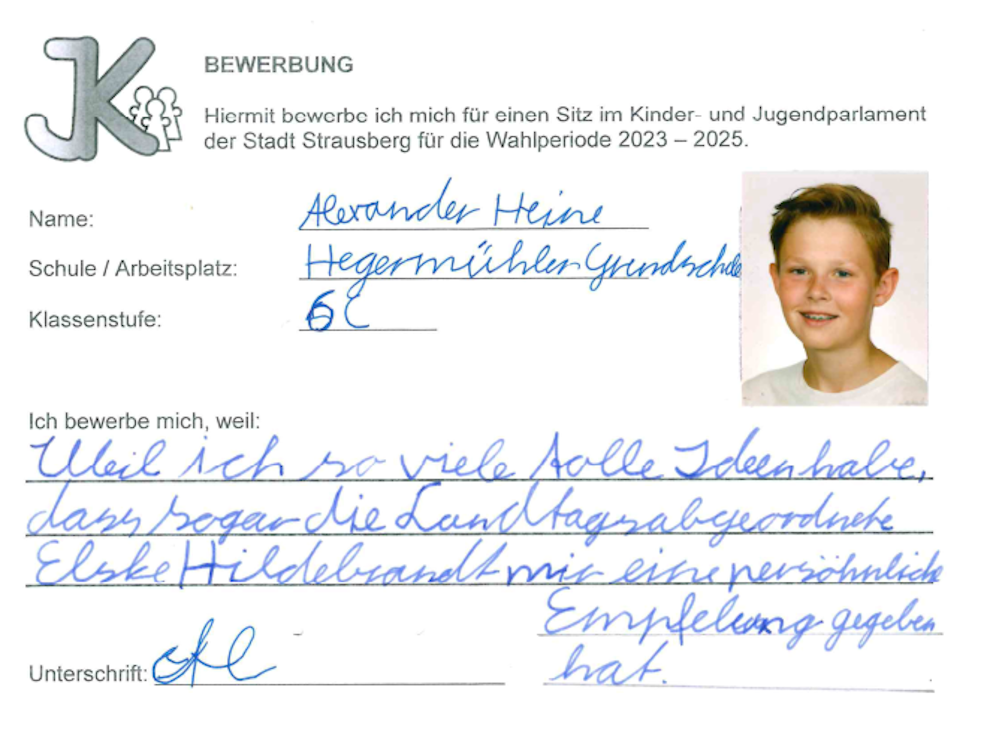 JK
BEWERBUNG
Hiermit bewerbe ich mich für einen Sitz im Kinder- und Jugendparlament
der Stadt Strausberg für die Wahlperiode 2023 – 2025.
Name: Alexander Heine
Schule / Arbeitsplatz: Hegermühlen Grundschule
Klassenstufe: 6C
Ich bewerbe mich, weil:
Weil ich so viele tolle Ideen habe,
dass sogar die Landtagsabgeordnete
Elske Hildebrandt mir eine persöhnliche
Empfelung gegeben
Unterschrift: hat.